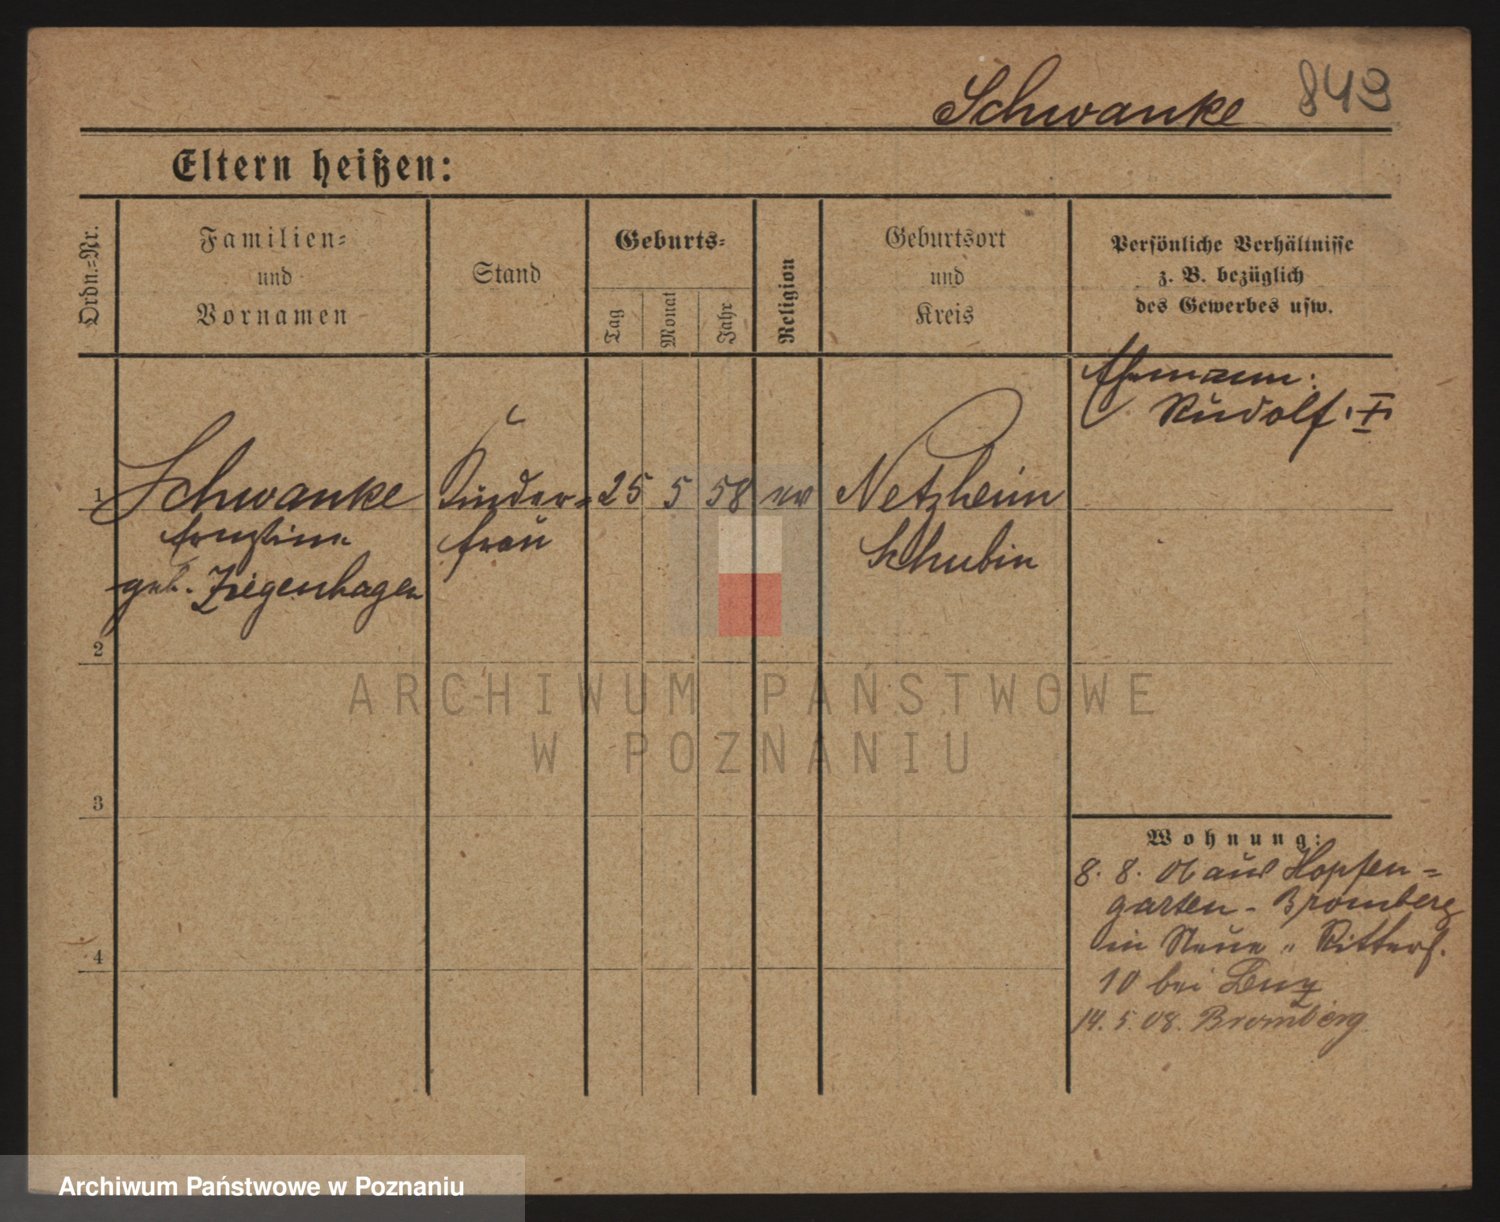 Schwanke 849
Eltern heißen:
Ordn.=Nr.
Familien=
und
Vornamen
Stand
Geburts=
Tag
Monat
Jahr
Religion
Geburtsort
und
Kreis
Persönliche Verhältnisse
z. B. bezüglich
des Gewerbes usw.
Ehemann:
Rudolf. †
1 Schwanke Kinder= 25 5 58 ev Netzheim
Ernstine frau Schubin
geb. Ziegenhagen
2
3
4
Wohnung:
8. 8. 06 aus Hopfen=
garten - Bromberg
in Neue " Ritterf.
10 bei
14. 5. 08. Bromberg
ARCHIWUM PAŃSTWOWE
W POZNANIU
Archiwum Państwowe w Poznaniu